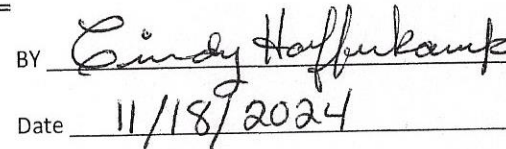 BY Cindy Hoffenkamp
Date 11/18/2024